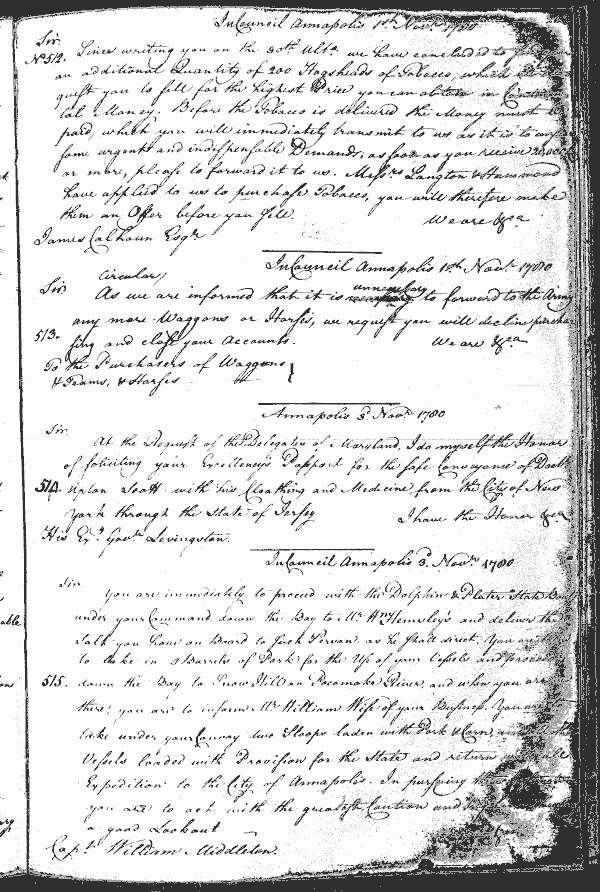 In Council Annapolis 1st Novr. 1780
Sir
No 512. Since writing you on the 30th Ulto. we have concluded to
an additional Quantity of 200 Hogsheads of Tobacco, which
quest you to sell for the highest Price you can obtain in
tal Money. Before the Tobacco is delivered the Money must be
paid, which you will immediately transmit to us as it is to
some urgent and indispensable Demands, as soon as you receive
or more, please to forward it to us. Messrs Langton & Hammond
have applied to us to purchase Tobacco, you will therefore make
them an Offer before you sell. We are &ca
James Calhoun Esqr
In Council Annapolis 1st Novr. 1780
Circular,
Sir unnecessary
As we are informed that it is to forward to the Army
any more Waggons or Horses, we request you will decline purcha
513. sing and close your Accounts. We are &ca
To the Purchasers of Waggons
& Teams, & Horses
Annapolis 3 Novr 1780
Sir
At the Request of the Delegates of Maryland, I do myself the Honor
of soliciting your Excellency's Passport for the safe Conveyance of Doctr
514. Upton Scott with his Cloathing and Medicine, from the City of New
York through the State of Jersey I have the Honor &ca
His Exy. Govr Levingston.
In Council Annapolis 3. Novr. 1780
Sir
You are immediately to proceed with the Dolphin & Plater State
under your Command down the Bay to Mr. Hny Hemsley's and deliver the
Salt you have on Board to such Person as he shall direct. You are
to take in 2 Barrels of Pork for the Use of your Vessels and proceed
515. down the Bay to Snow Hill on Pocomoke River, and when you are
there, you are to inform Mr William Wise of your Business. You are
take under your Convoy two Sloops laden with Pork & Corn, and
Vessels loaded with Provision for the State and return
Expedition to the City of Annapolis. In pursuing
you are to act with the greatest Caution and
a good Lookout
Capt. William Middleton.